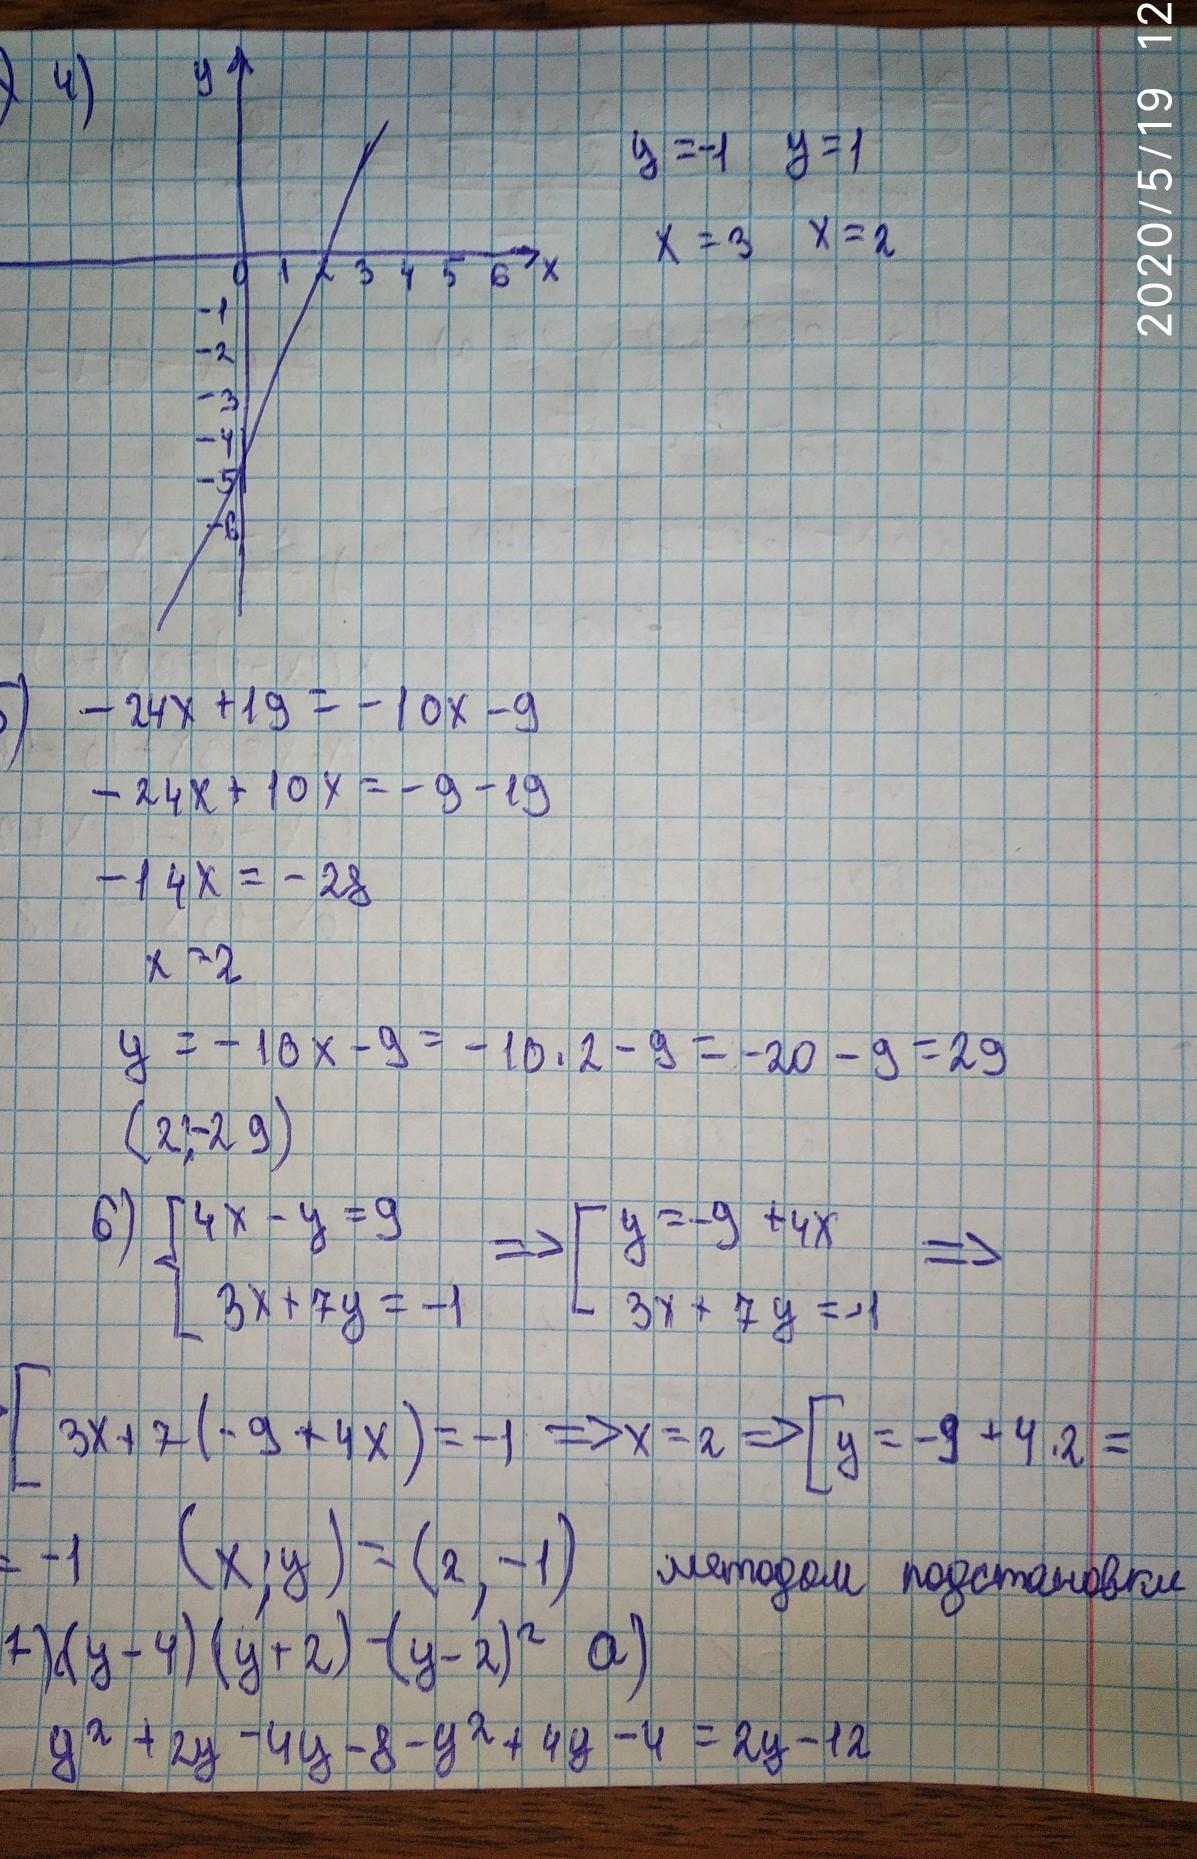 2020/5/19 12
) 4)
y
y = -1 y = 1
x = 3 x = 2
0 1 2 3 4 5 6 x
-1
-2
-3
-4
-5
-6
5) -24x + 19 = -10x - 9
-24x + 10x = -9 - 19
-14x = -28
x = 2
y = -10x - 9 = -10 · 2 - 9 = -20 - 9 = 29
(2; -29)
6) { 4x - y = 9 => [ y = -9 + 4x =>
3x + 7y = -1 3x + 7y = -1
[ 3x + 7(-9 + 4x) = -1 => x = 2 => [ y = -9 + 4 · 2 =
= -1 (x; y) = (2, -1) методом подстановки
7) (y - 4)(y + 2) - (y - 2)² a)
y² + 2y - 4y - 8 - y² + 4y - 4 = 2y - 12